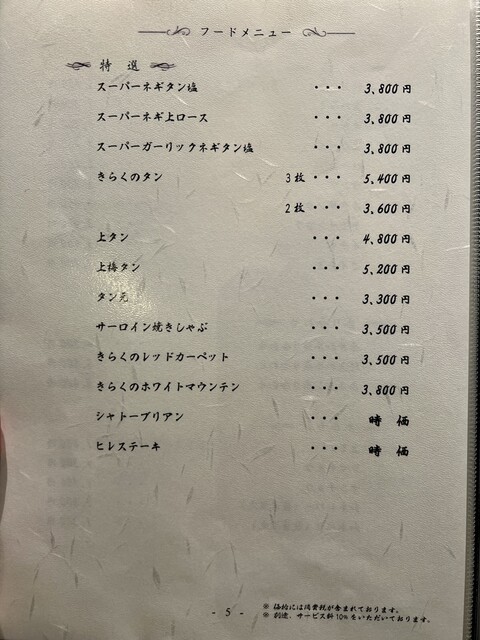 フードメニュー
特選
スーパーネギタン塩 ・・・ 3,800円
スーパーネギ上ロース ・・・ 3,800円
スーパーガーリックネギタン塩 ・・・ 3,800円
きらくのタン 3枚・・・ 5,400円
2枚・・・ 3,600円
上タン ・・・ 4,800円
上梅タン ・・・ 5,200円
タン元 ・・・ 3,300円
サーロイン焼きしゃぶ ・・・ 3,500円
きらくのレッドカーペット ・・・ 3,500円
きらくのホワイトマウンテン ・・・ 3,800円
シャトーブリアン ・・・ 時価
ヒレステーキ ・・・ 時価
※ 価格には消費税が含まれております。
- 5 -
※ 別途、サービス料10%をいただいております。